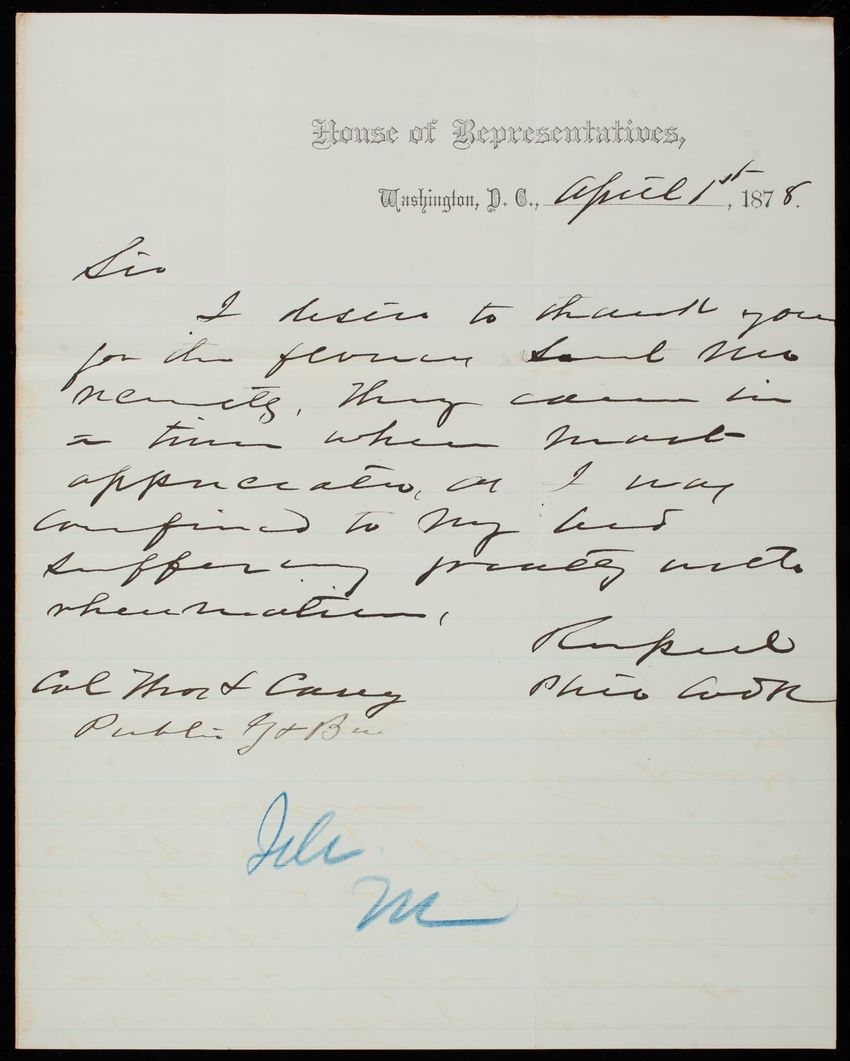 House of Representatives,
Washington, D. C., April 1st, 1878.
Sir
I desire to thank you
for the flowers send me
recently. They came in
a time when most
appreciated, as I was
confined to my bed
suffering greatly with
rheumatism.
Respect
Phil Cook
Col Thos L Casey
Public G & Bu
File
M